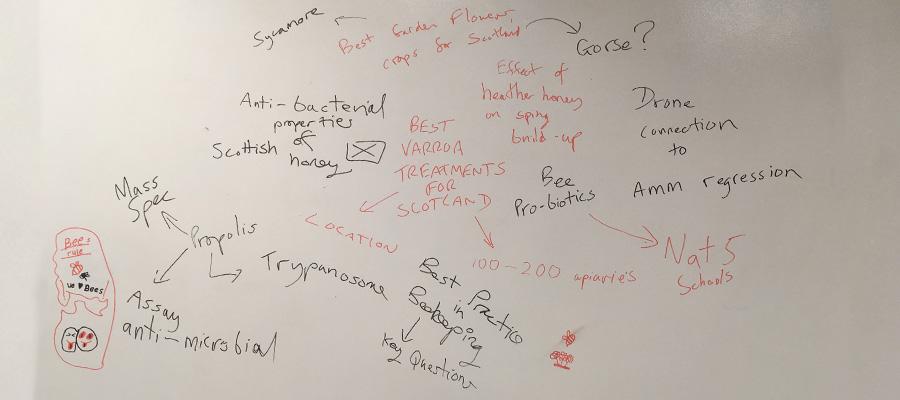 Sycamore
Best Garden Flowers,
crops for Scotland
Gorse?
Effect of
heather honey
on spring
build-up
Anti-bacterial
properties
of
Scottish honey
BEST
VARROA
TREATMENTS
FOR
SCOTLAND
LOCATION
100-200 apiaries
Drone
connection
to
Amm regression
Bee
Pro-biotics
Nat 5
Schools
Mass
Spec
Propolis
Trypanosome
Assay
anti-microbial
Best Practice
in
Beekeeping
Key Questions
Bees
rule
we ♥ Bees!